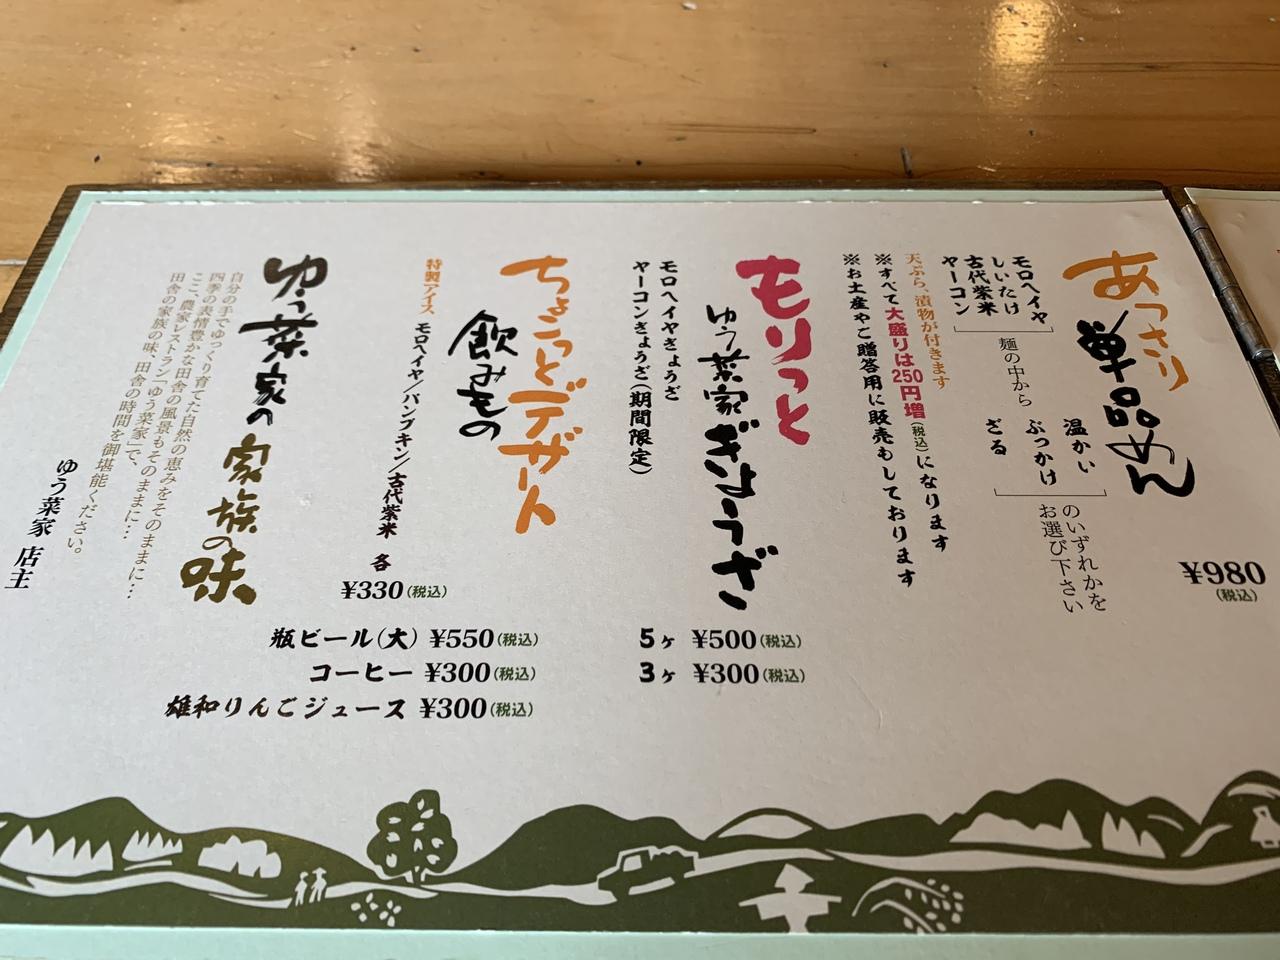 あっさり
単品めん
¥980
(税込)
モロヘイヤ
しいたけ
古代紫米
ヤーコン
麺の中から
温かい
ぶっかけ
ざる
のいずれかを
お選び下さい
天ぷら、漬物が付きます
※すべて大盛りは250円増(税込)になります
※お土産やご贈答用に販売もしております
もりっと
ゆう菜家ぎょうざ
モロヘイヤぎょうざ
ヤーコンぎょうざ(期間限定)
5ヶ ¥500(税込)
3ヶ ¥300(税込)
ちょこっとデザート
飲みもの
特製アイス モロヘイヤ/パンプキン/古代紫米 各
¥330(税込)
瓶ビール(大) ¥550(税込)
コーヒー ¥300(税込)
雄和りんごジュース ¥300(税込)
ゆう菜家の
家族の味
自分の手でゆっくり育てた自然の恵みをそのままに…
四季の表情豊かな田舎の風景もそのままに…
ここ、農家レストラン「ゆう菜家」で、
田舎の家族の味、田舎の時間を御堪能ください。
ゆう菜家 店主